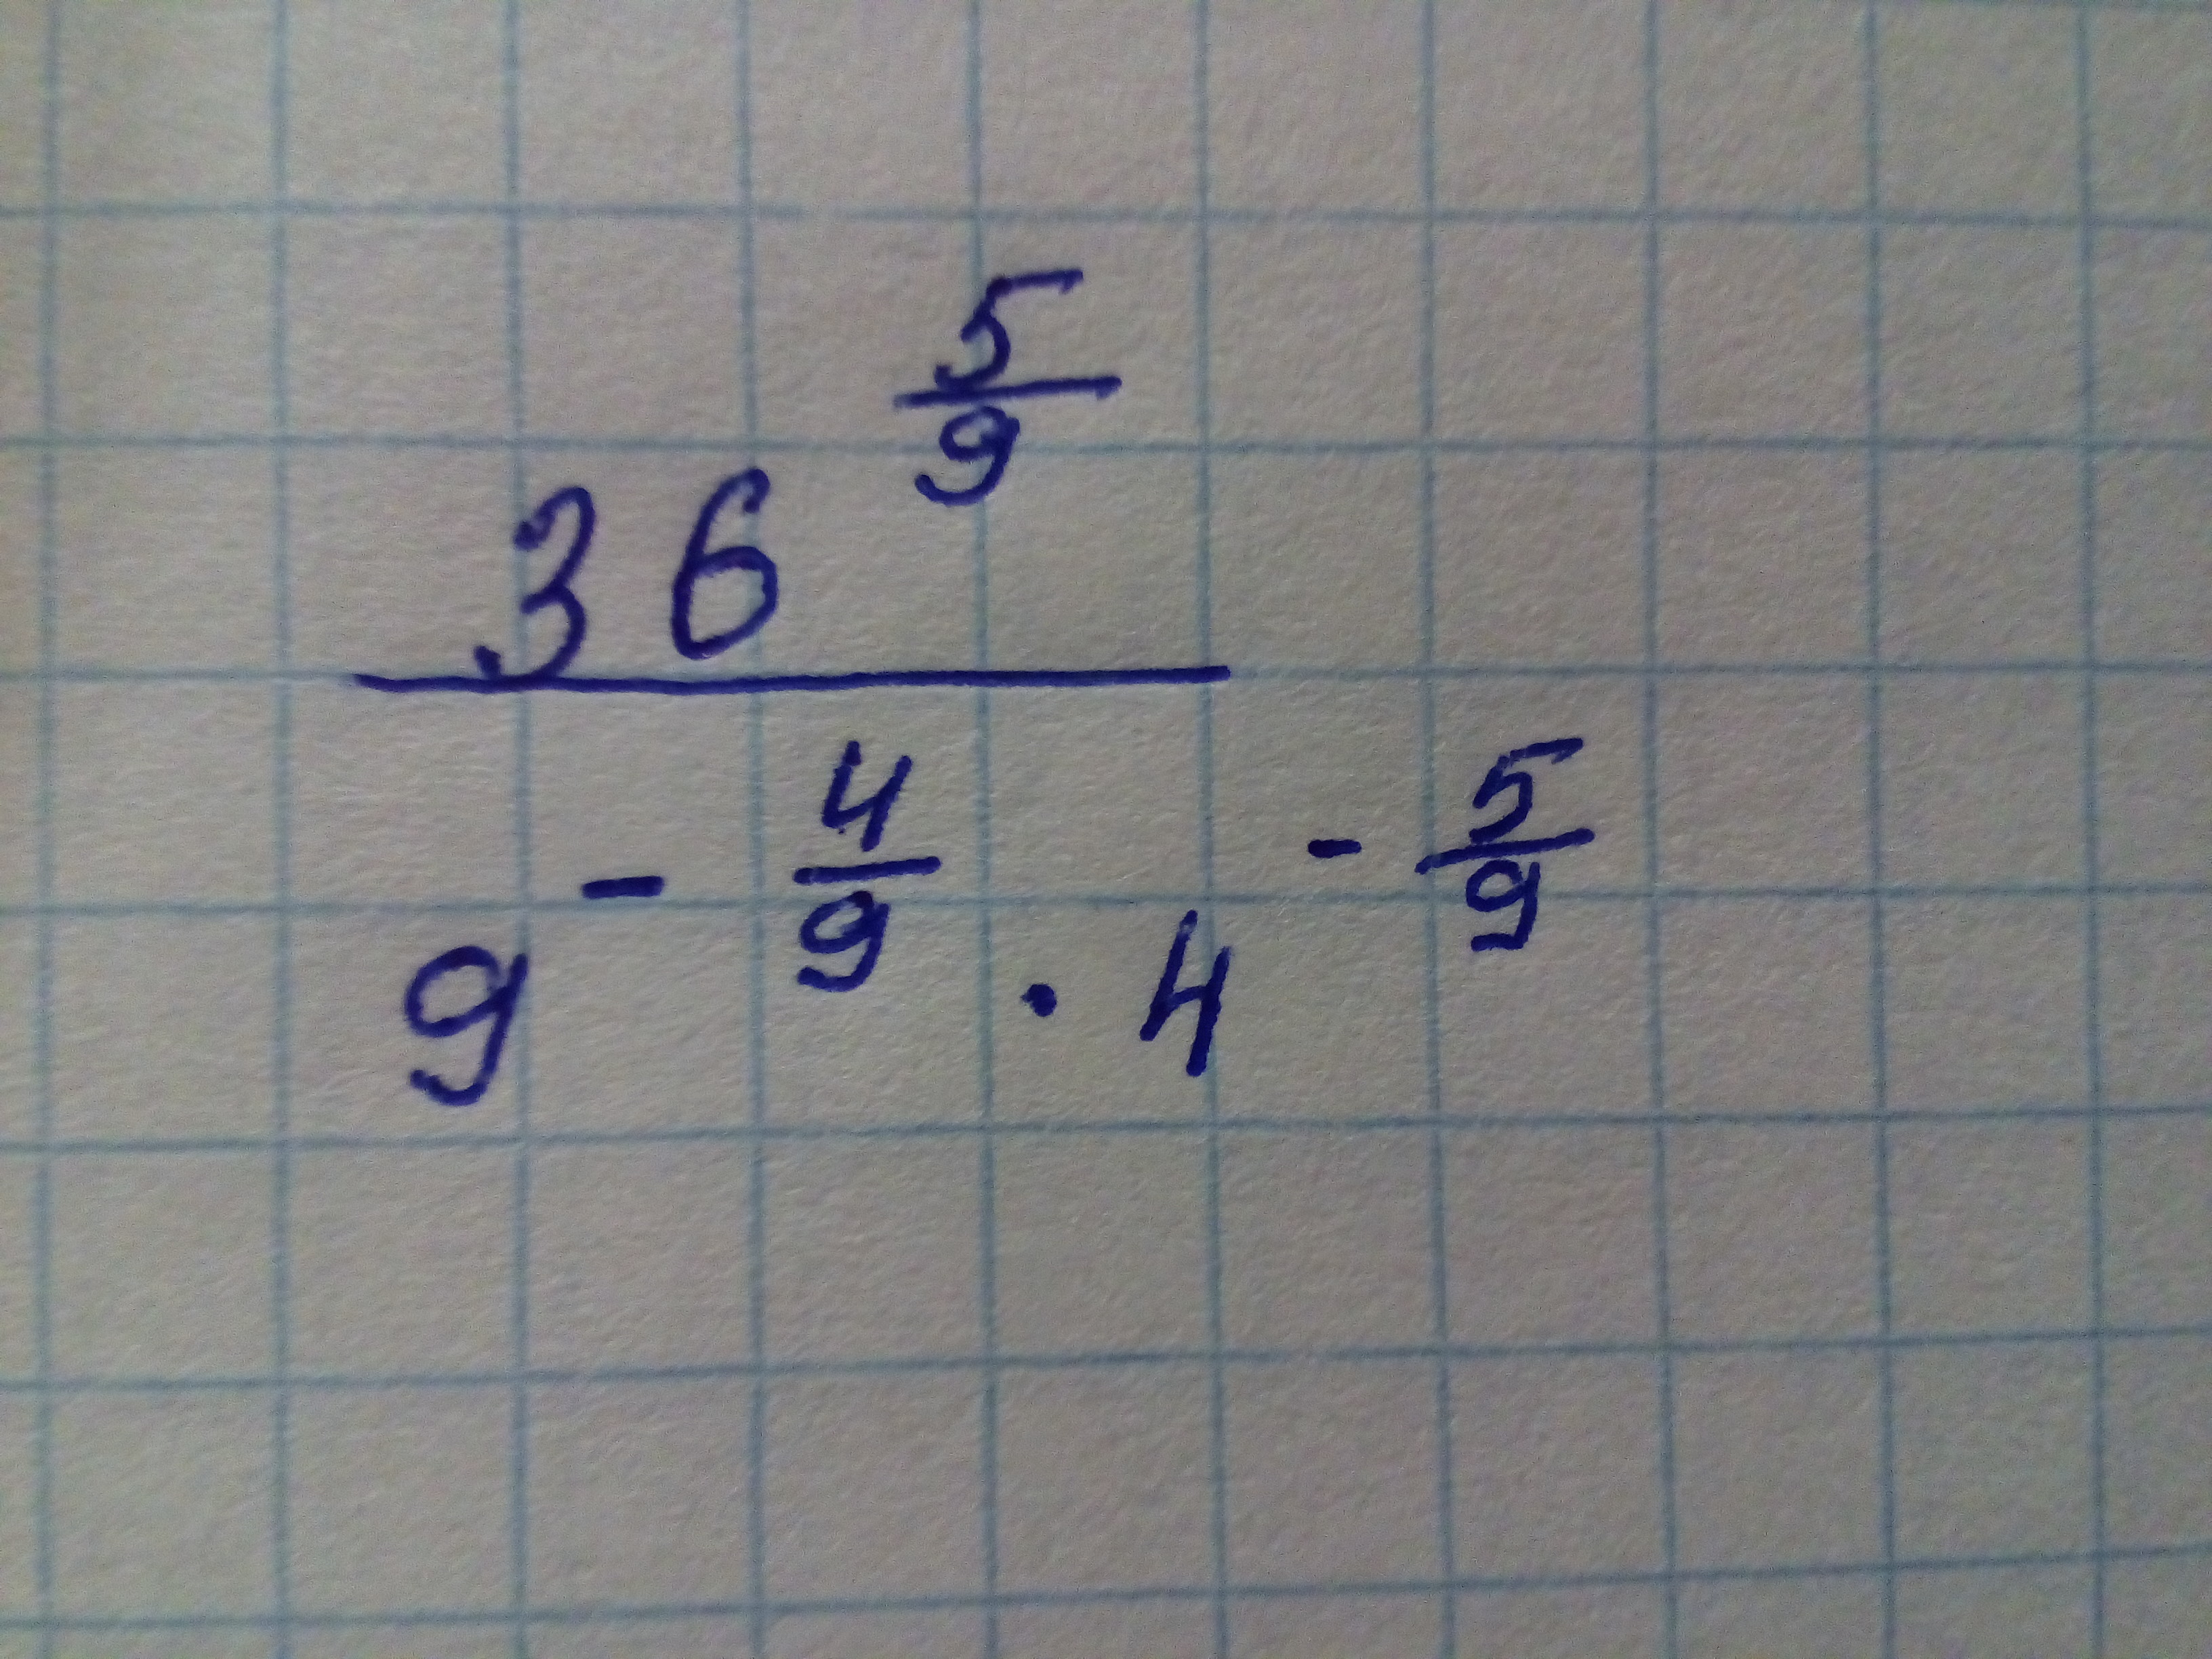 36^{\frac{5}{9}}
9^{-\frac{4}{9}} · 4^{-\frac{5}{9}}